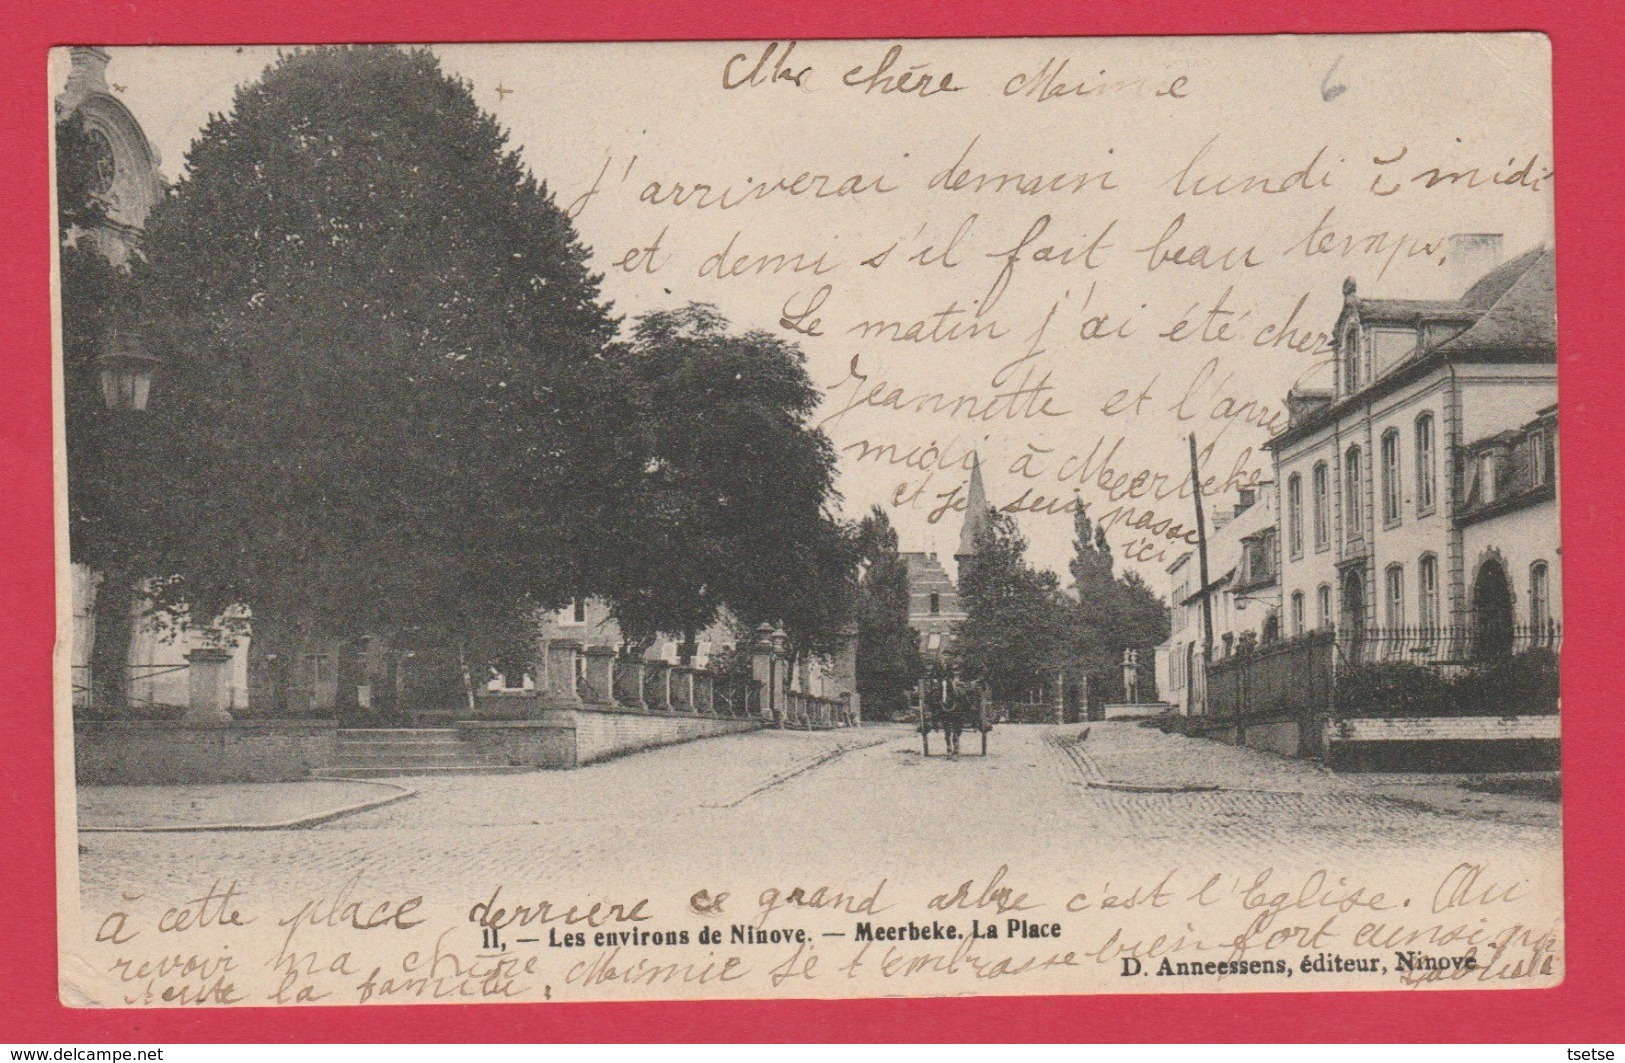 Ma chère Mimie
6
J'arriverai demain lundi à midi
et demi s'il fait beau temps.
Le matin j'ai été chez
Jeannette et l'après
midi à Meerbeke
et je suis passé
ici
à cette place derriere ce grand arbre c'est l'Eglise. Au
11, — Les environs de Ninove. — Meerbeke. La Place
revoir ma chère Mimie Je t'embrasse bien fort ainsi que
D. Anneessens, éditeur, Ninove
toute la famille.
www.delcampe.net
tsetse